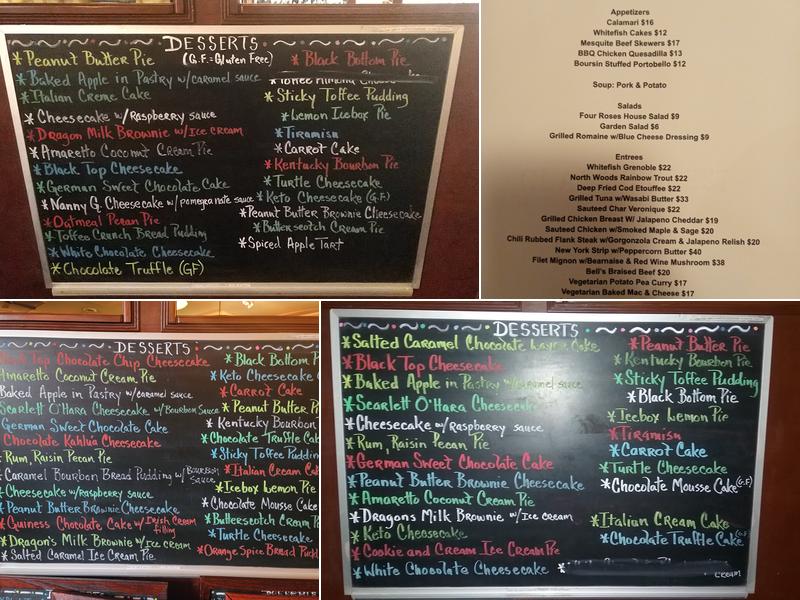 DESSERTS
(G.F.=Gluten Free)
*Peanut Butter Pie
*Baked Apple in Pastry w/caramel sauce
*Italian Creme Cake
*Cheesecake w/Raspberry sauce
*Dragon Milk Brownie w/Ice cream
*Amaretto Coconut Cream Pie
*Black Top Cheesecake
*German Sweet Chocolate Cake
*Nanny G. Cheesecake w/pomegranate sauce
*Oatmeal Pecan Pie
*Toffee Crunch Bread Pudding
*White Chocolate Cheesecake
*Chocolate Truffle (GF)
*Black Bottom Pie
*Toffee Almond
*Sticky Toffee Pudding
*Lemon Icebox Pie
*Tiramisu
*Carrot Cake
*Kentucky Bourbon Pie
*Turtle Cheesecake
*Keto Cheesecake (G.F)
*Peanut Butter Brownie Cheesecake
*Butterscotch Cream Pie
*Spiced Apple Tart
Appetizers
Calamari $16
Whitefish Cakes $12
Mesquite Beef Skewers $17
BBQ Chicken Quesadilla $13
Boursin Stuffed Portobello $12
Soup: Pork & Potato
Salads
Four Roses House Salad $9
Garden Salad $6
Grilled Romaine w/Blue Cheese Dressing $9
Entrees
Whitefish Grenoble $22
North Woods Rainbow Trout $22
Deep Fried Cod Etouffee $22
Grilled Tuna w/Wasabi Butter $33
Sauteed Char Veronique $22
Grilled Chicken Breast W/ Jalapeno Cheddar $19
Sauteed Chicken w/Smoked Maple & Sage $20
Chili Rubbed Flank Steak w/Gorgonzola Cream & Jalapeno Relish $20
New York Strip w/Peppercorn Butter $40
Filet Mignon w/Bearnaise & Red Wine Mushroom $38
Bell's Braised Beef $20
Vegetarian Potato Pea Curry $17
Vegetarian Baked Mac & Cheese $17
DESSERTS
Black Top Chocolate Chip Cheesecake
Amaretto Coconut Cream Pie
Baked Apple in Pastry w/caramel sauce
Scarlett O'Hara Cheesecake w/Bourbon Sauce
German Sweet Chocolate Cake
Chocolate Kahlua Cheesecake
*Rum, Raisin Pecan Pie
*Caramel Bourbon Bread Pudding w/Bourbon Sauce
*Cheesecake w/Raspberry sauce
*Peanut Butter Brownie Cheesecake
*Guiness Chocolate Cake w/Irish Cream filling
*Dragon's Milk Brownie w/Ice cream
*Salted Caramel Ice Cream Pie
*Black Bottom P
*Keto Cheesecake
*Carrot Cake
*Peanut Butter P
*Kentucky Bourbon
*Chocolate Truffle Cak
*Sticky Toffee Puddin
*Italian Cream Ca
*Icebox Lemon Pie
*Chocolate Mousse Cake
*Butterscotch Cream P
*Turtle Cheesecake
*Orange Spice Bread Pudd
DESSERTS
*Salted Caramel Chocolate Layer Cake
*Black Top Cheesecake
*Baked Apple in Pastry w/caramel sauce
*Scarlett O'Hara Cheesecake
*Cheesecake w/Raspberry sauce
*Rum, Raisin Pecan Pie
*German Sweet Chocolate Cake
*Peanut Butter Brownie Cheesecake
*Amaretto Coconut Cream Pie
*Dragons Milk Brownie w/Ice cream
*Keto Cheesecake
*Cookie and Cream Ice Cream Pie
*White Chocolate Cheesecake
*Peanut Butter Pie
*Kentucky Bourbon Pie
*Sticky Toffee Pudding
*Black Bottom Pie
*Icebox Lemon Pie
*Tiramisu
*Carrot Cake
*Turtle Cheesecake
*Chocolate Mousse Cake (G.F)
*Italian Cream Cake
*Chocolate Truffle Cake (G.F)
*
cream